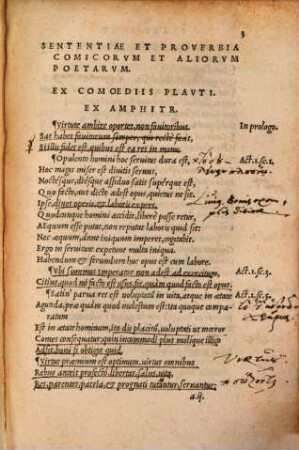 3
SENTENTIAE ET PROVERBIA
COMICORVM ET ALIORVM
POETARVM.
EX COMOEDIIS PLAVTI.
EX AMPHITR.
¶Virtute ambire oportet, non fauitoribus. In prologo.
Sat habet fauitorum semper, qui recte facit,
Si illis fides est, quibus est ea res in manu.
¶Opulento homini hoc seruitus dura est, Act.1.sc.1.
Hoc magis miser est diuitis seruus,
Noctesque, diesque assiduo satis superque est,
Quo facto, aut dicto adest opus, quietus ne sis.
Ipse diues operis, & laboris expers,
Quodcunque homini accidit, libere posse retur,
Aequum esse putat, non reputat laboris quid sit:
Nec aequum, anne iniquum imperet, cogitabit.
Ergo in seruitute expetunt multa iniqua.
Habendum & ferundum hoc opus est cum labore.
¶Vbi summus imperator non adest ad exercitum, Act.1.sc.
Citius quod non facto est usus fit, quàm quod facto est opus.
¶Satin' parua res est uoluptatum in uita, atque in aetate Act.
Agunda, præ quàm quod molestum est: ita quoique comparatum
Est in aetate hominum, ita dis placitū, uoluptati ut mœror
Comes consequatur: quin incommodi plus malique illico
Adsit, boni si obtigit quid.
¶Virtus præmium est optimum, uirtus omnibus
Rebus anteit profecto. libertas, salus, uita,
Res, parentes, patria, et prognati tutantur, seruantur:
a.ij.